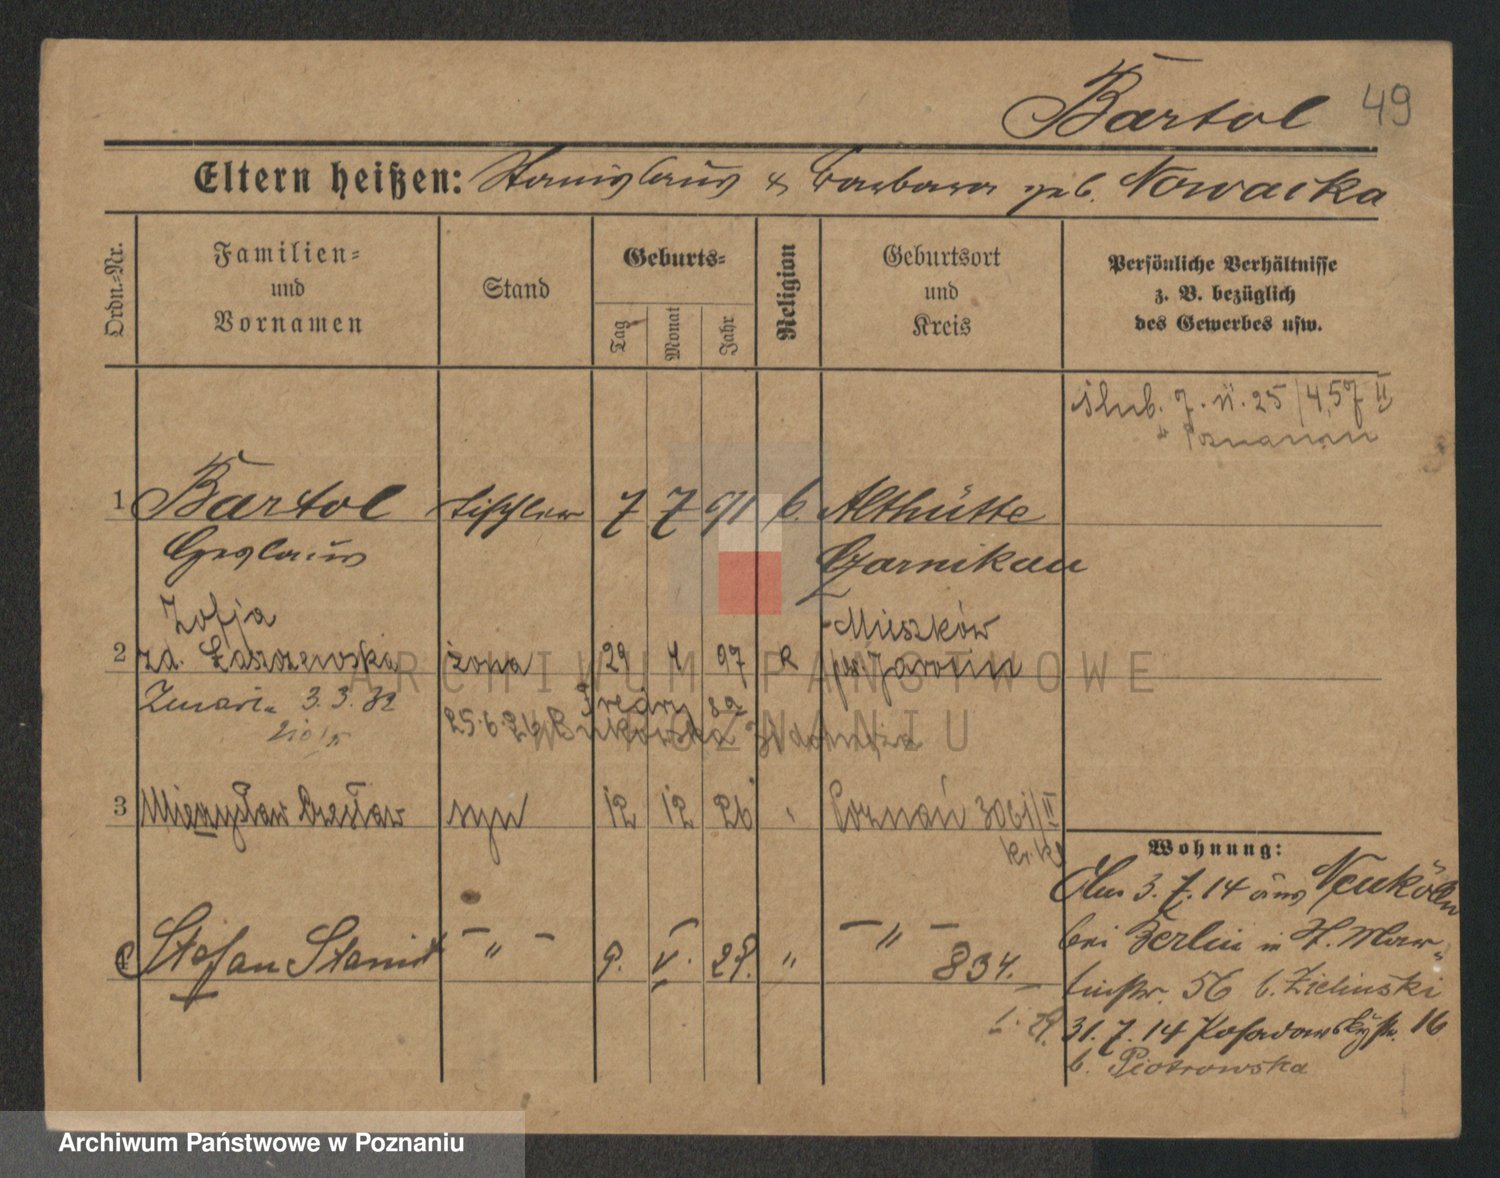 Bartol 49
Eltern heißen: Stanislaus & Barbara geb. Nowacka
Ordn.-Nr.
Familien-
und
Vornamen
Stand
Geburts-
Tag
Monat
Jahr
Religion
Geburtsort
und
Kreis
Persönliche Verhältnisse
z. B. bezüglich
des Gewerbes usw.
ślub. 25/4,27 II
w Poznaniu
1 Bartol Tischler 7 7 91 k. Althütte
Czeslaus Czarnikau
Zofja Mieszków
2 zd. Łaszczewska żona 29 4 97 R pow. Jarocin
Zmarła 3.3.32
25.6.26 Bukowska
3 Mieczysław Czesław syn 12 12 26 " Poznań 3061/II
4 Stefan Stanisł. - " - 9. V. 28. " - " - 834.
Wohnung:
Am 3.7.14 aus Neukölln
bei Berlin in H. Mar-
tinstr. 56 b. Zielinski
31.7.14 Posadowskystr. 16
b. Piotrowska
ARCHIWUM PAŃSTWOWE
W POZNANIU
Archiwum Państwowe w Poznaniu